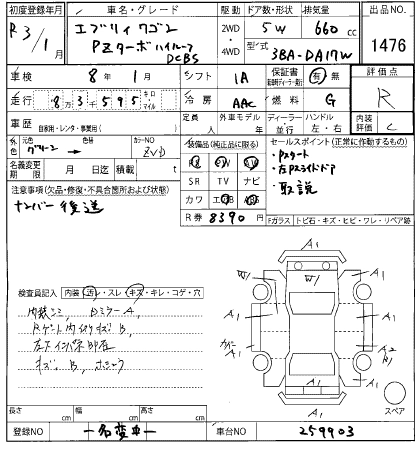 初度登録年月
R3/1月
車名・グレード
エブリイワゴン
PZターボハイルーフ
DCBS
駆動
2WD
4WD
ドア数・形状
5W
排気量
660 cc
型式
3BA-DA17W
出品NO.
1476
車検
8年1月
シフト
IA
保証書
有・無
評価点
R
走行
83595
キロ
マイル
冷房
AAC
燃料
G
内装評価
C
車歴
自家用・レンタ・事業用( )
定員
人
外車モデル
年
ディーラー
並行
ハンドル
左・右
外色
元色
グリーン
色替
カラーNO
ZVD
名義変更期限
月
日迄
積載
t
装備品(純正品に限る)
PS
SR
TV
ナビ
カワ
エアB
R券
8390円
セールスポイント(正常に作動するもの)
・Pスタート
・左Pスライドドア
・取説
注意事項(欠品・修復・不具合箇所および状態)
ナンバー後送
Fガラス
トビ石・キズ・ヒビ・ワレ・リペア跡
検査員記入
内装
汚レ・スレ・キズ・キレ・コゲ・穴
内装シミ
DミラーA
Rゲート内切りキズB
キズB
A1
A1
W1
W1
A1
A1
A1
A1
A2
A1
A1
スペア
長さ
cm
幅
cm
高さ
cm
登録NO
一名変車一
車台NO
259903